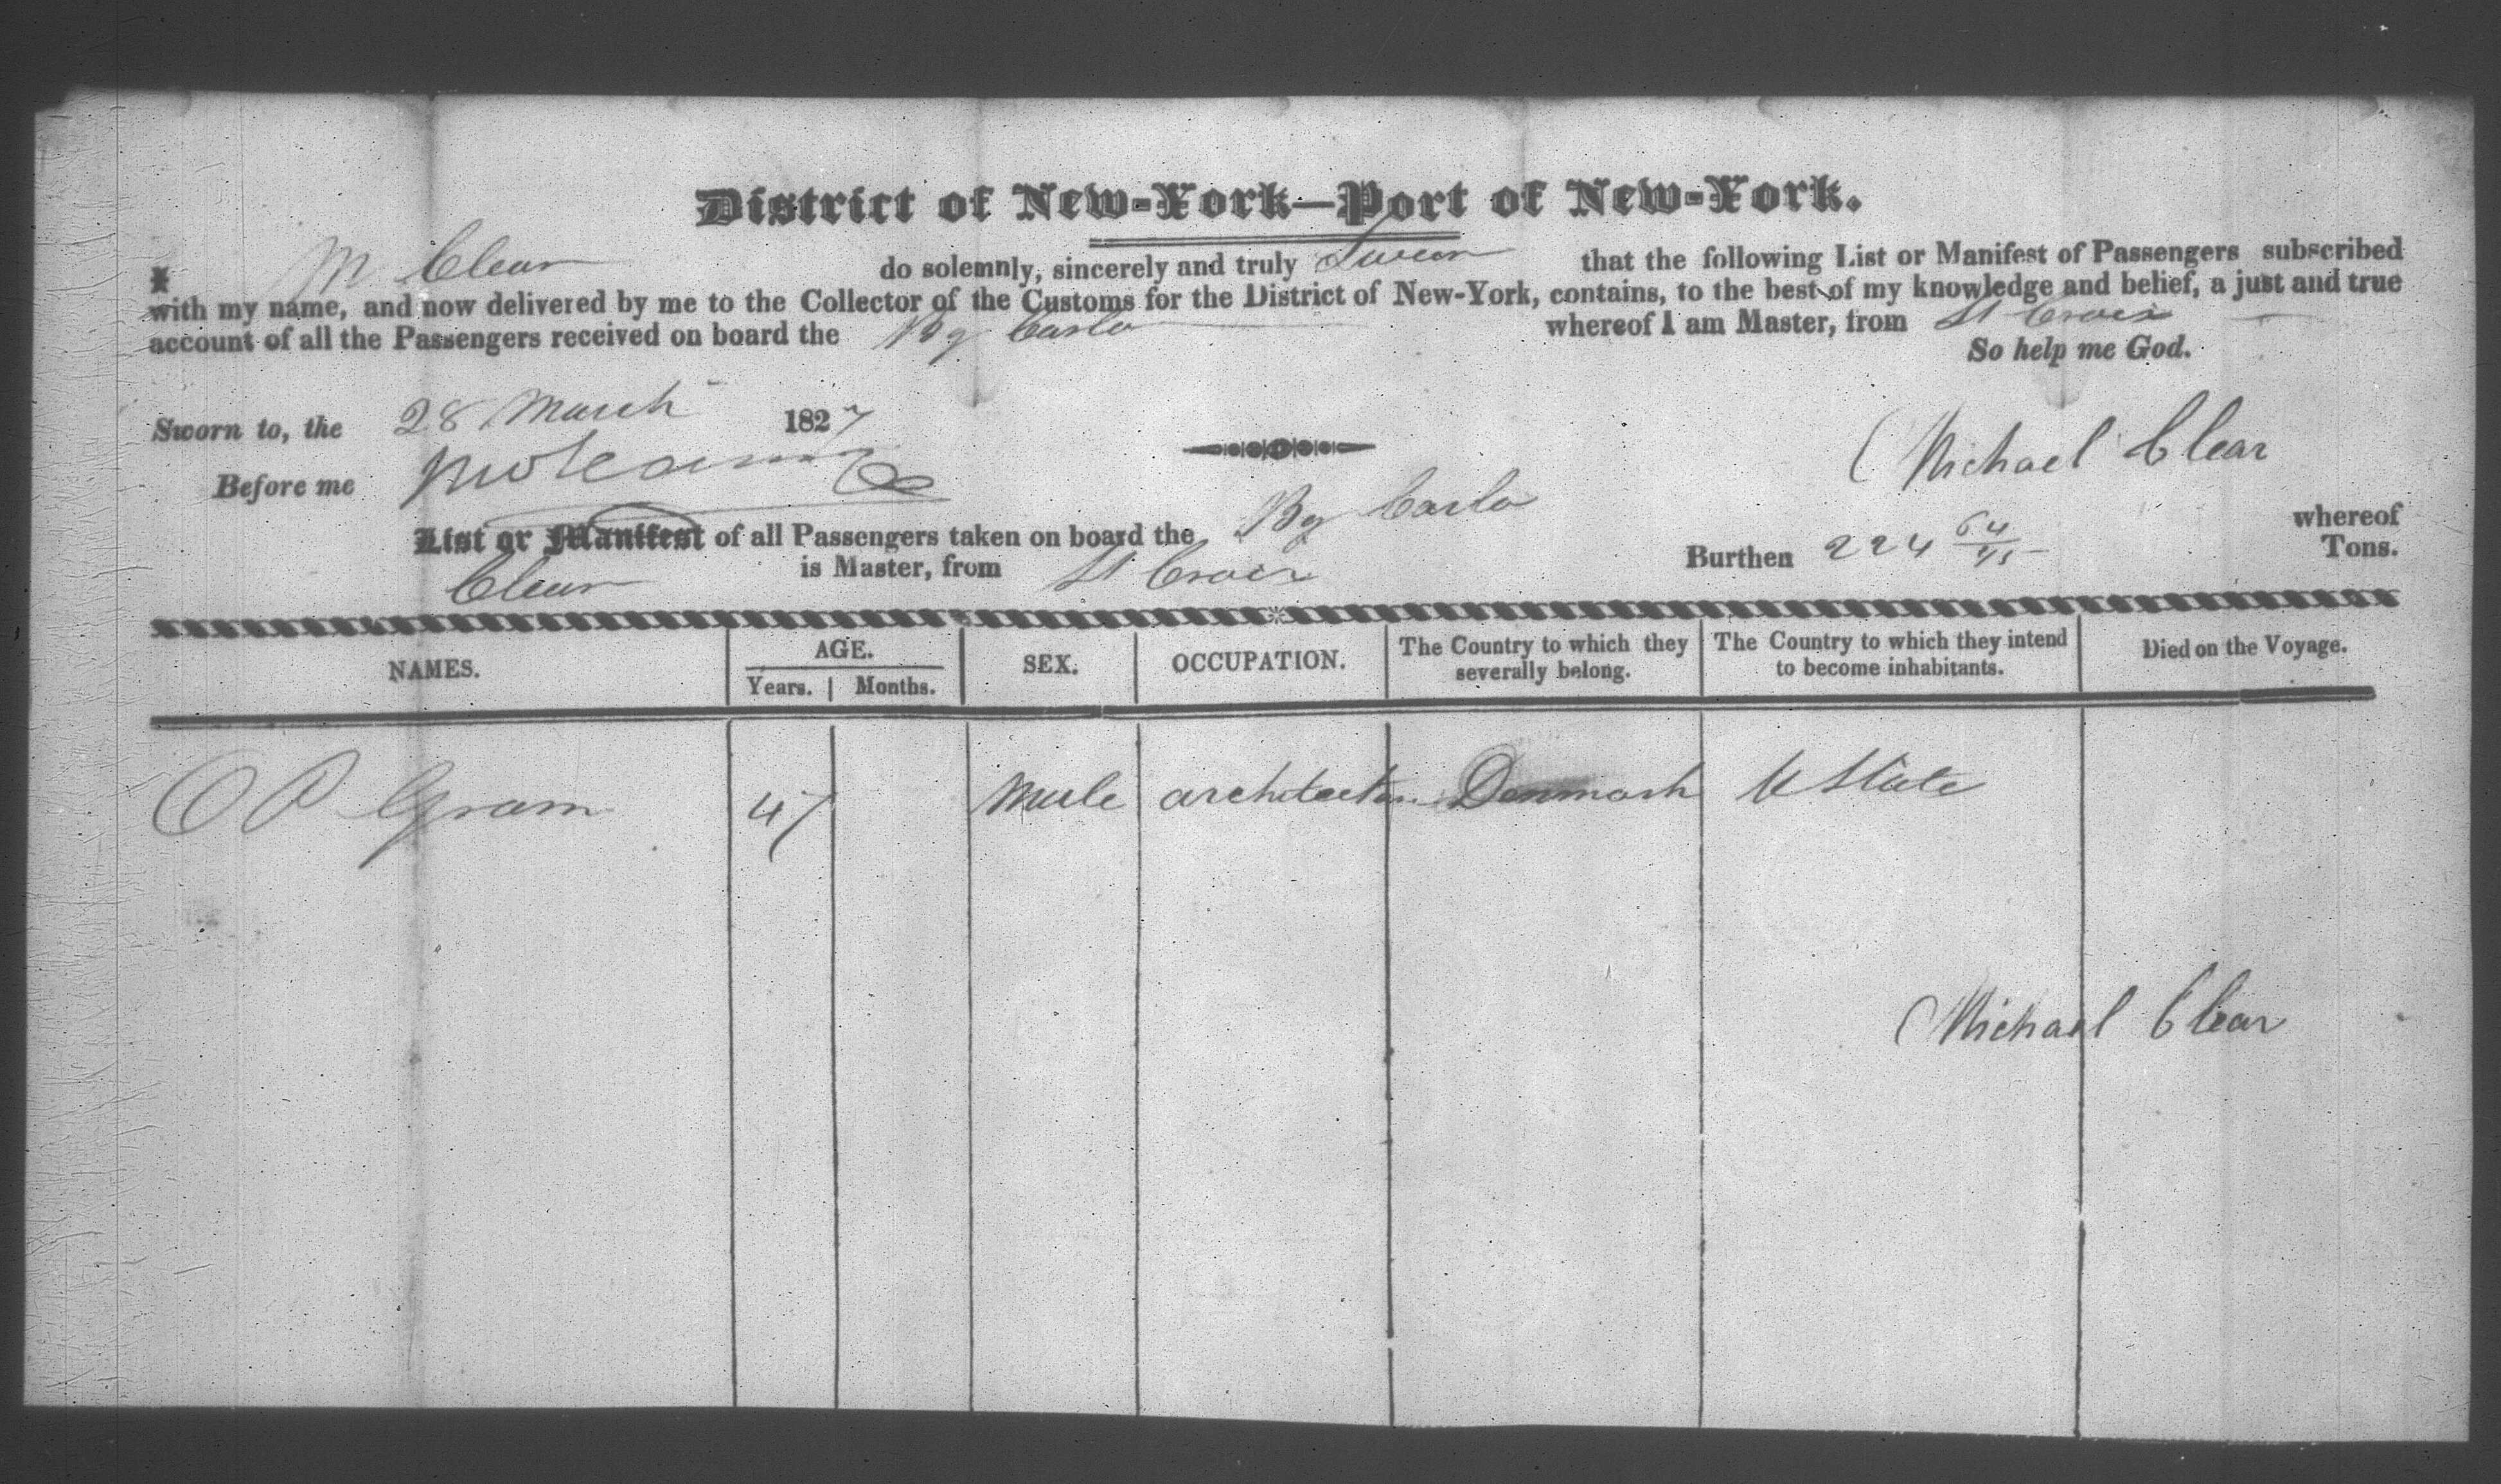 District of New-York—Port of New-York.
I M Clear do solemnly, sincerely and truly Swear that the following List or Manifest of Passengers subscribed
with my name, and now delivered by me to the Collector of the Customs for the District of New-York, contains, to the best of my knowledge and belief, a just and true
account of all the Passengers received on board the Bg Carlo whereof I am Master, from St Croix
So help me God.
Sworn to, the 28 March 1827
Before me
Michael Clear
List or Manifest of all Passengers taken on board the Bg Carlo whereof
Clear is Master, from St Croix Burthen 224 64/95 Tons.
NAMES. AGE. Years. Months. SEX. OCCUPATION. The Country to which they severally belong. The Country to which they intend to become inhabitants. Died on the Voyage.
O P Gram 47 Male Denmark U State
Michael Clear